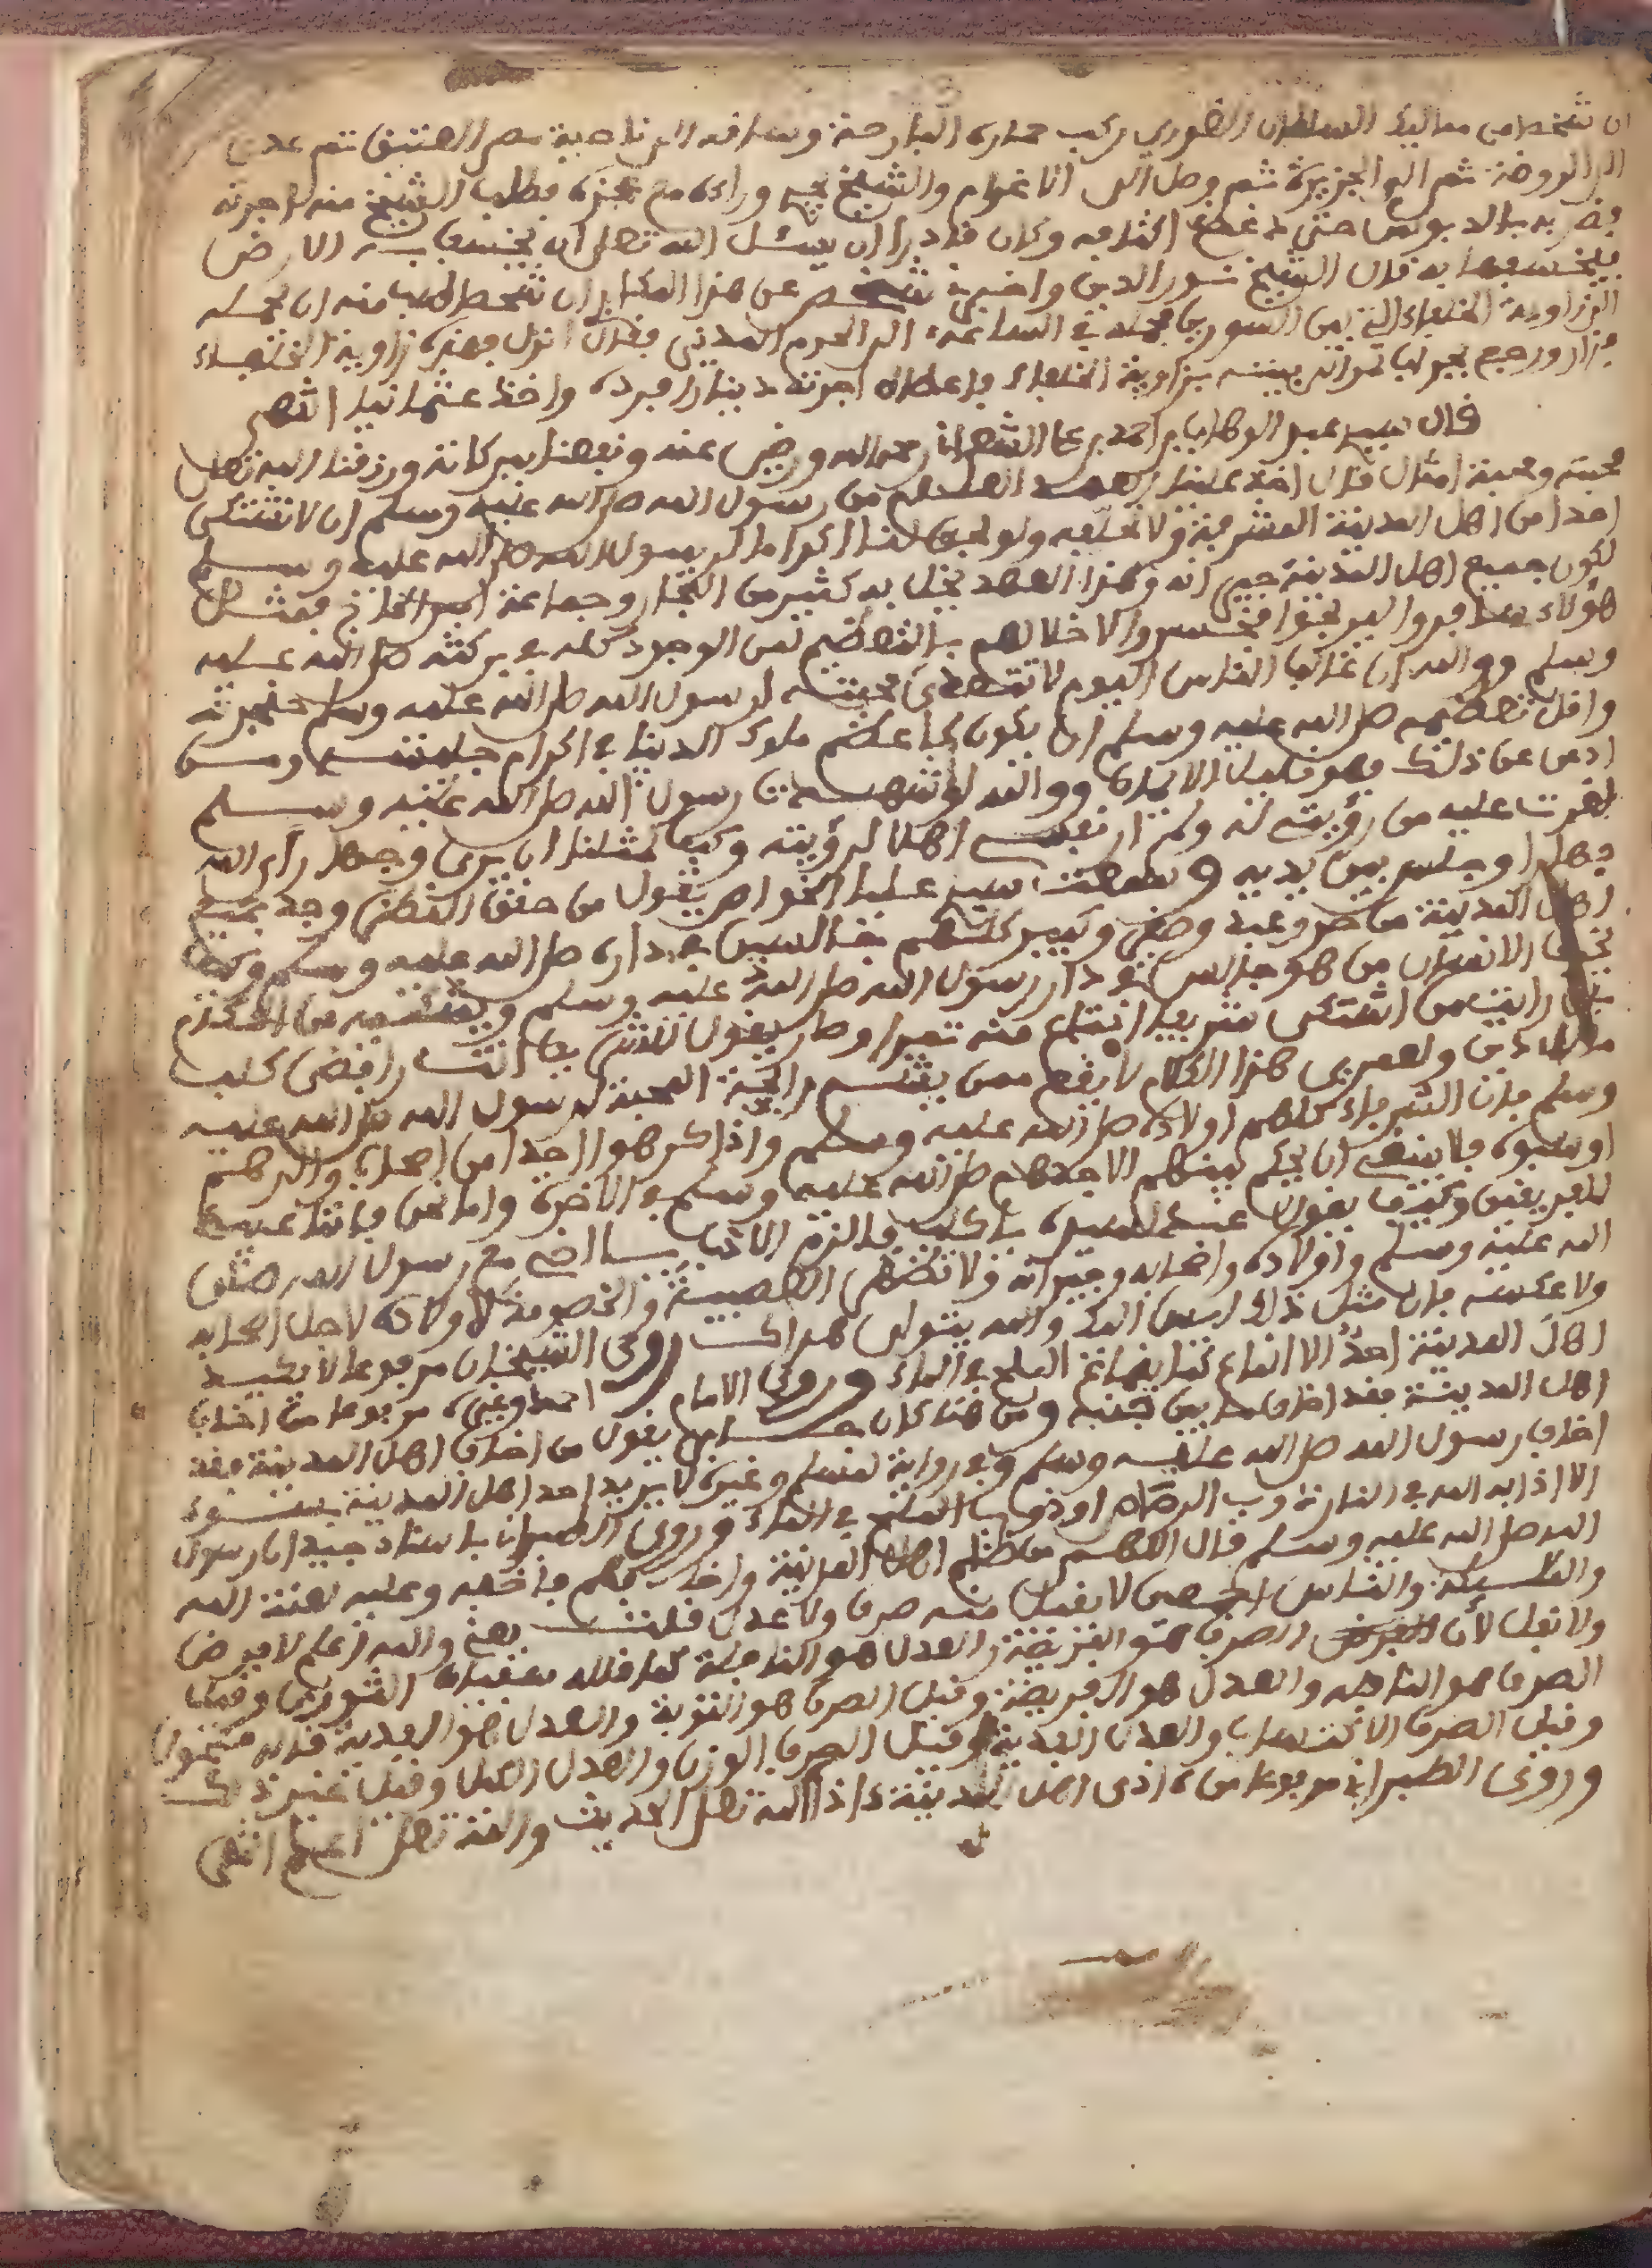 ان شخصا من مماليك السلطان الغوري ركب حماره البارحة وساقه الى ناحية مصر العتيق ثم عدى
الى الروضة ثم الى الجزيرة ثم وصل الى انا غوام والشيخ يجري وراءه مع عجزه فطلب الشيخ منه اجرته
فضربه بالدبوس حتى اكتافه وكان قادرا ان يسئل الله تعلى ان يخسف به الارض
فيخسفها به قال الشيخ نور الدين واخبرني شخص عن هذا المكاري ان شخصا طلب منه ان يحمله
الى زاوية الخلفاء التي بين السورين فحمله في الساعة الى الحرم المدني فقال انزل فهذه زاوية الخلفاء
فزار ورجع بيته بزاوية الخلفاء فاعطاه اجرته دينارا فرده واخذ عثمانيا انتهى
قال سيدي عبد الوهاب بن احمد بن علي الشعراني رحمه الله ورضي عنه ونفعنا ببركاته ورزقنا الله تعلى
محبته ومحبة امثاله قال اخذ علينا العهد العام من رسول الله صلى الله عليه وسلم ان لا نشتكي
احدا من اهل المدينة المشرفة ولا نخيفه ولو لنا اكراما لرسول الله صلى الله عليه وسلم
لكون جميع اهل المدينة جيرانه وهذا العهد يخل به كثير من التجار وجماعة امير الحاج فمثل
هؤلاء سافروا ليربحوا فخسروا لاخلالهم بالتعظيم لمن الوجود كله في بركته صلى الله عليه
وسلم ووالله ان غالب الناس اليوم لا تتعدى محبته لرسول الله صلى الله عليه وسلم حنجرته
واقل تعظيمه صلى الله عليه وسلم ان يكون كاعظم ملوك الدنيا في اكرام جلسته ومن
ادعى عن ذلك فهو قليل الايمان ووالله لو رسول الله صلى الله عليه وسلم
لغرت عليه من رؤيتي له ولم ار نفسي اهلا لرؤيته وكيف لمثلنا ان يرى وجها رأى الله
جهارا وجلس بين يديه وسمعت سيدي عليا الخواص يقول من حقق النظر وجد جميع
اهل المدينة من حر وعبد وصغير وكبير كلهم جالسين في داره صلى الله عليه وسلم وكيف
الانسان من هو جالس في دار رسول الله صلى الله عليه وسلم
رايت من اشتكى شريفا ابتاع منه تمرا وصار يقول للشريف انت رافضي كلب
ولعمري هذا الكلام لا يقع ممن يشم رائحة المحبة لرسول الله صلى الله عليه
وسلم فان الشرفاء كلهم اولاده صلى الله عليه وسلم واذا كرهوا احدا من اصحاب والدهم
او سبوه فلا ينبغي ان يحكم بينهم الا جدهم صلى الله عليه وسلم في الاخرة واما نحن فاننا عبيد
للفريقين وكيف يقول عبد لسيده يا كلب فالزم الادب يا اخي مع رسول الله صلى
الله عليه وسلم واولاده واصحابه وجيرانه ولا تظهر العصبية والخصومة لاولاده لاجل اصحابه
ولا عكسه فان مثل ذلك ليس اليك والله يتولى هداك روى الشيخان مرفوعا لا يكيد
اهل المدينة احد الا انماع كما ينماع الملح في الماء وروى الامام احمد وغيره مرفوعا من اخاف
اهل المدينة فقد اخاف ما بين جنبيه ومن هنا كان يقول من اخاف اهل المدينة فقد
اخاف رسول الله صلى الله عليه وسلم وفي رواية لمسلم وغيره لا يريد احد اهل المدينة بسوء
الا اذابه الله في النار ذوب الرصاص او ذوب الملح في الماء وروى الطبراني باسناد جيد ان رسول
الله صلى الله عليه وسلم قال اللهم من ظلم اهل المدينة واخافهم فاخفه وعليه لعنة الله
والملئكة والناس اجمعين لا يقبل منه صرف ولا عدل قلت يعني والله اعلم لا فرض
ولا نفل لأن الصرف هو الفريضة والعدل هو النافلة كما قاله سفيان الثوري وقيل
الصرف هو النافلة والعدل هو الفريضة وقيل الصرف هو التوبة والعدل هو الفدية قاله مكحول
وقيل الصرف الاكتساب والعدل الفدية وقيل الصرف الوزن والعدل الكيل وقيل غير ذلك
وروى الطبراني مرفوعا من اذى اهل المدينة اذاه الله تعلى الحديث والله تعلى اعلم انتهى